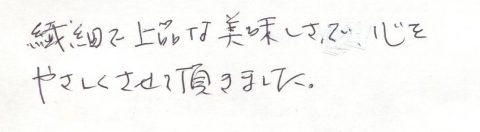 繊細で上品な美味しさで、心を
やさしくさせて頂きました。